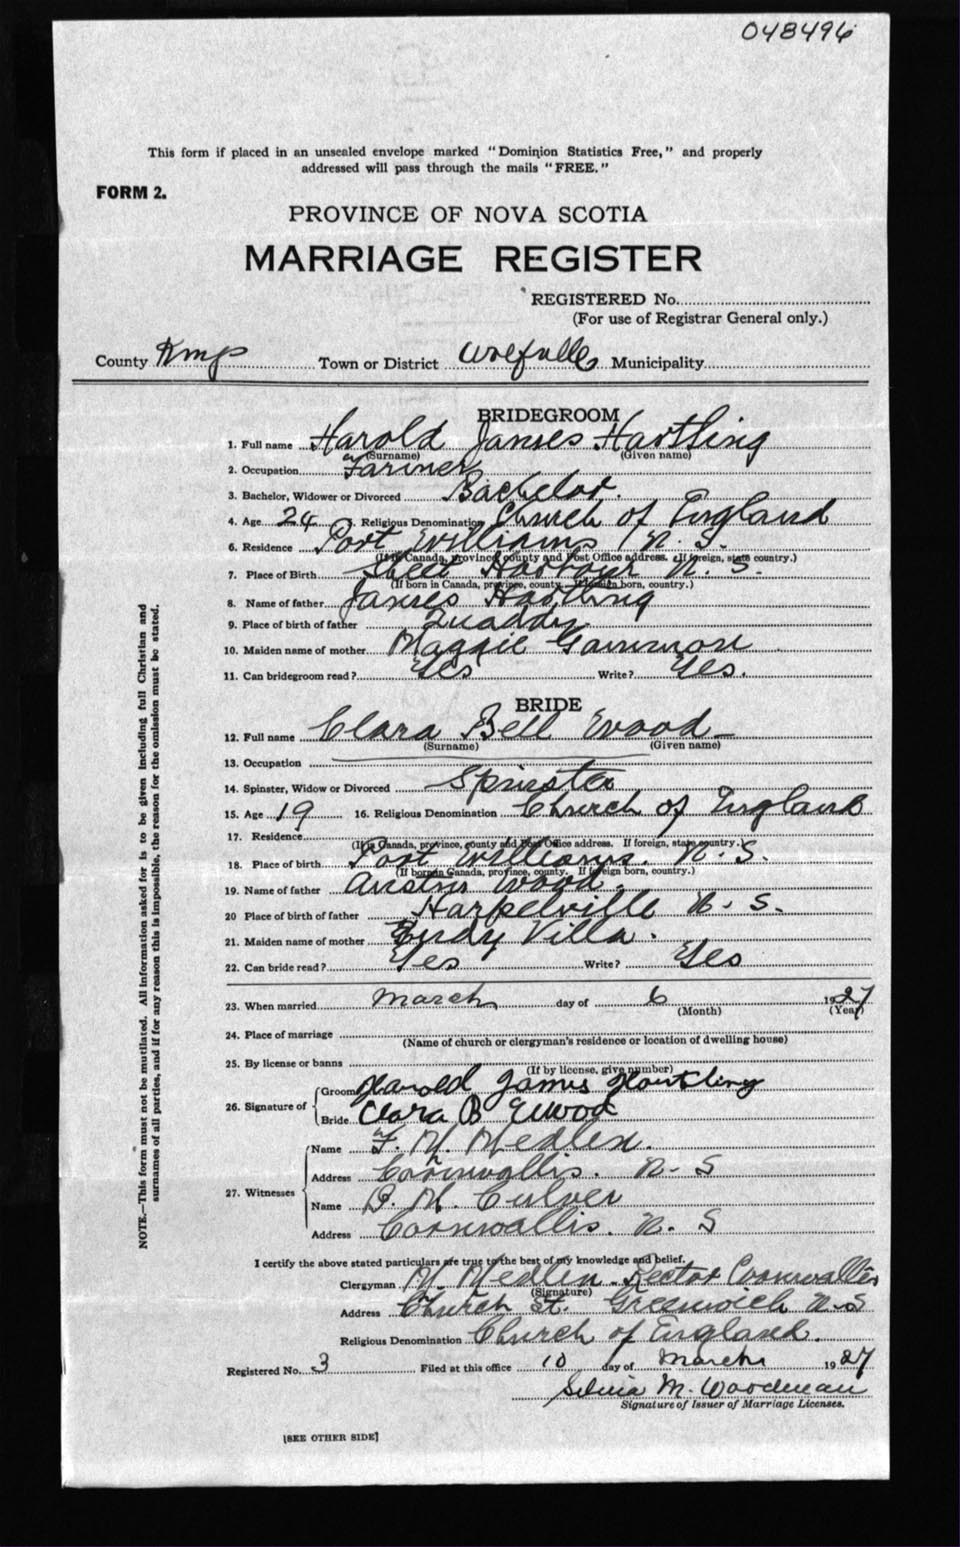 048496
This form if placed in an unsealed envelope marked "Dominion Statistics Free," and properly
addressed will pass through the mails "FREE."
FORM 2.
PROVINCE OF NOVA SCOTIA
MARRIAGE REGISTER
REGISTERED No.
(For use of Registrar General only.)
County Kings Town or District Wolfville Municipality
BRIDEGROOM
1. Full name Harold James Hartling
(Surname) (Given name)
2. Occupation Farmer
3. Bachelor, Widower or Divorced Bachelor.
4. Age 24 5. Religious Denomination Church of England
6. Residence Port Williams N. S.
(If in Canada, province, county and Post Office address. If foreign, state country.)
7. Place of Birth Sheet Harbour N. S.
(If born in Canada, province, county. If foreign born, country.)
8. Name of father James Hartling
9. Place of birth of father Quaddy
10. Maiden name of mother Maggie Gammon
11. Can bridegroom read? Yes Write? Yes.
BRIDE
12. Full name Clara Bell Wood
(Surname) (Given name)
13. Occupation
14. Spinster, Widow or Divorced Spinster
15. Age 19 16. Religious Denomination Church of England
17. Residence
(If in Canada, province, county and Post Office address. If foreign, state country.)
18. Place of birth Port Williams. N. S.
(If born in Canada, province, county. If foreign born, country.)
19. Name of father Wood.
20 Place of birth of father Harpelville N. S.
21. Maiden name of mother Villa.
22. Can bride read? Yes Write? Yes
23. When married March day of 6 1927
(Month) (Year)
24. Place of marriage
(Name of church or clergyman's residence or location of dwelling house)
25. By license or banns
(If by license, give number)
26. Signature of Groom Harold James Hartling
Bride Clara B
27. Witnesses Name F. M. Medlen.
Address Cornwallis. N. S
Name B. M. Culver
Address Cornwallis. N. S
I certify the above stated particulars are true to the best of my knowledge and belief.
Clergyman M. Medlen. Rector Cornwallis
(Signature)
Address Church St. Greenwich N. S
Religious Denomination Church of England.
Registered No. 3 Filed at this office 10 day of March 1927
Silvia M. Woodman
Signature of Issuer of Marriage Licenses.
[SEE OTHER SIDE]
NOTE.—This form must not be mutilated. All information asked for is to be given including full Christian and
surnames of all parties, and if for any reason this is impossible, the reason for the omission must be stated.